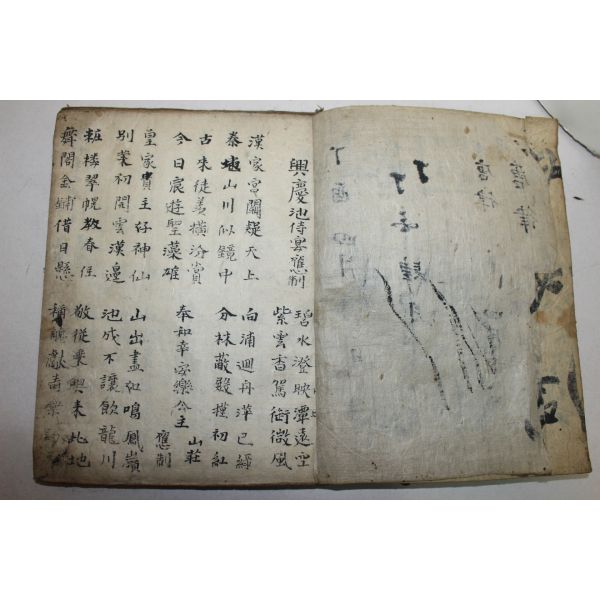 唐律
唐律
丁酉四月
興慶池侍宴應制
碧水澄映潭遠空
紫雲香駕御微風
漢家宮闕疑天上
秦地山川似鏡中
向浦迴舟萍已綠
分林蔽殿槿初紅
古來徒羨橫汾賞
今日宸遊聖藻雄
奉和幸安樂公主山莊應制
皇家貴主好神仙
別業初開雲漢邊
山出盡如鳴鳳嶺
池成不讓飲龍川
粧樓翠幌教春住
舞閣金鋪借日懸
敬從乘輿來此地
稱觴獻壽樂